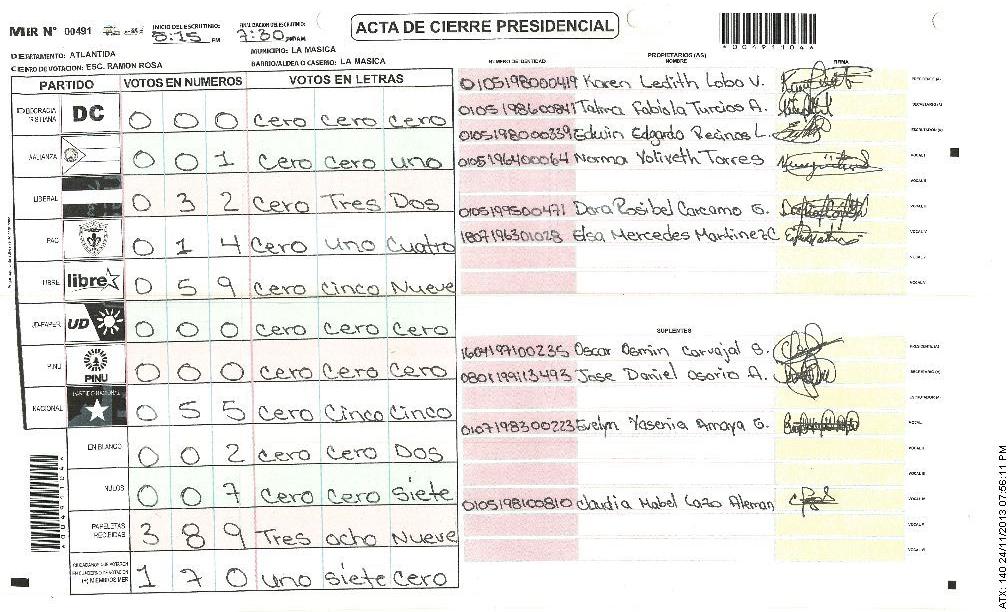 MER Nº 00491
INICIO DEL ESCRUTINIO: 5:15 PM
FINALIZACION DEL ESCRUTINIO: 7:30 PM/AM
ACTA DE CIERRE PRESIDENCIAL
DEPARTAMENTO: ATLANTIDA
MUNICIPIO: LA MASICA
CENTRO DE VOTACION: ESC. RAMON ROSA
BARRIO/ALDEA O CASERIO: LA MASICA
PARTIDO VOTOS EN NUMEROS VOTOS EN LETRAS
DEMOCRACIA CRISTIANA DC 0 0 0 cero cero cero
ALIANZA 0 0 1 cero cero uno
LIBERAL 0 3 2 cero Tres Dos
PAC 0 1 4 cero uno cuatro
LIBRE libre 0 5 9 cero cinco Nueve
UD-FAPER UD 0 0 0 cero cero cero
PINU PINU 0 0 0 cero cero cero
NACIONAL PARTIDO NACIONAL 0 5 5 cero cinco cinco
EN BLANCO 0 0 2 cero cero Dos
NULOS 0 0 7 cero cero siete
PAPELETAS RECIBIDAS 3 8 9 Tres ocho Nueve
CIUDADANOS QUE VOTARON EN CUADERNO DE VOTACION (+) MIEMBROS MER 1 7 0 uno siete cero
PROPIETARIOS (AS)
NUMERO DE IDENTIDAD NOMBRE FIRMA
0105198000419 Karen Ledith Lobo V. PRESIDENTE (A)
0105198600847 Talma Fabiola Turcios A. SECRETARIO (A)
0105198000339 Edwin Edgardo Recinos L. ESCRUTADOR (A)
0105196400064 Norma Yoliveth Torres VOCAL I
VOCAL II
0105199500471 Dora Rosibel Carcamo G. VOCAL III
1807196301028 Elsa Mercedes Martinez C VOCAL IV
VOCAL V
VOCAL VI
SUPLENTES
1604197100235 Oscar Osmin Carvajal S. PRESIDENTE (A)
0801199113493 Jose Daniel Osorio A. SECRETARIO (A)
ESCRUTADOR (A)
0107198300223 Evelyn Yasenia Amaya G. VOCAL I
VOCAL II
VOCAL III
0105198100810 Claudia Mabel Lazo Aleman VOCAL IV
VOCAL V
VOCAL VI
ATX: 140 24/11/2013 07:56:11 PM